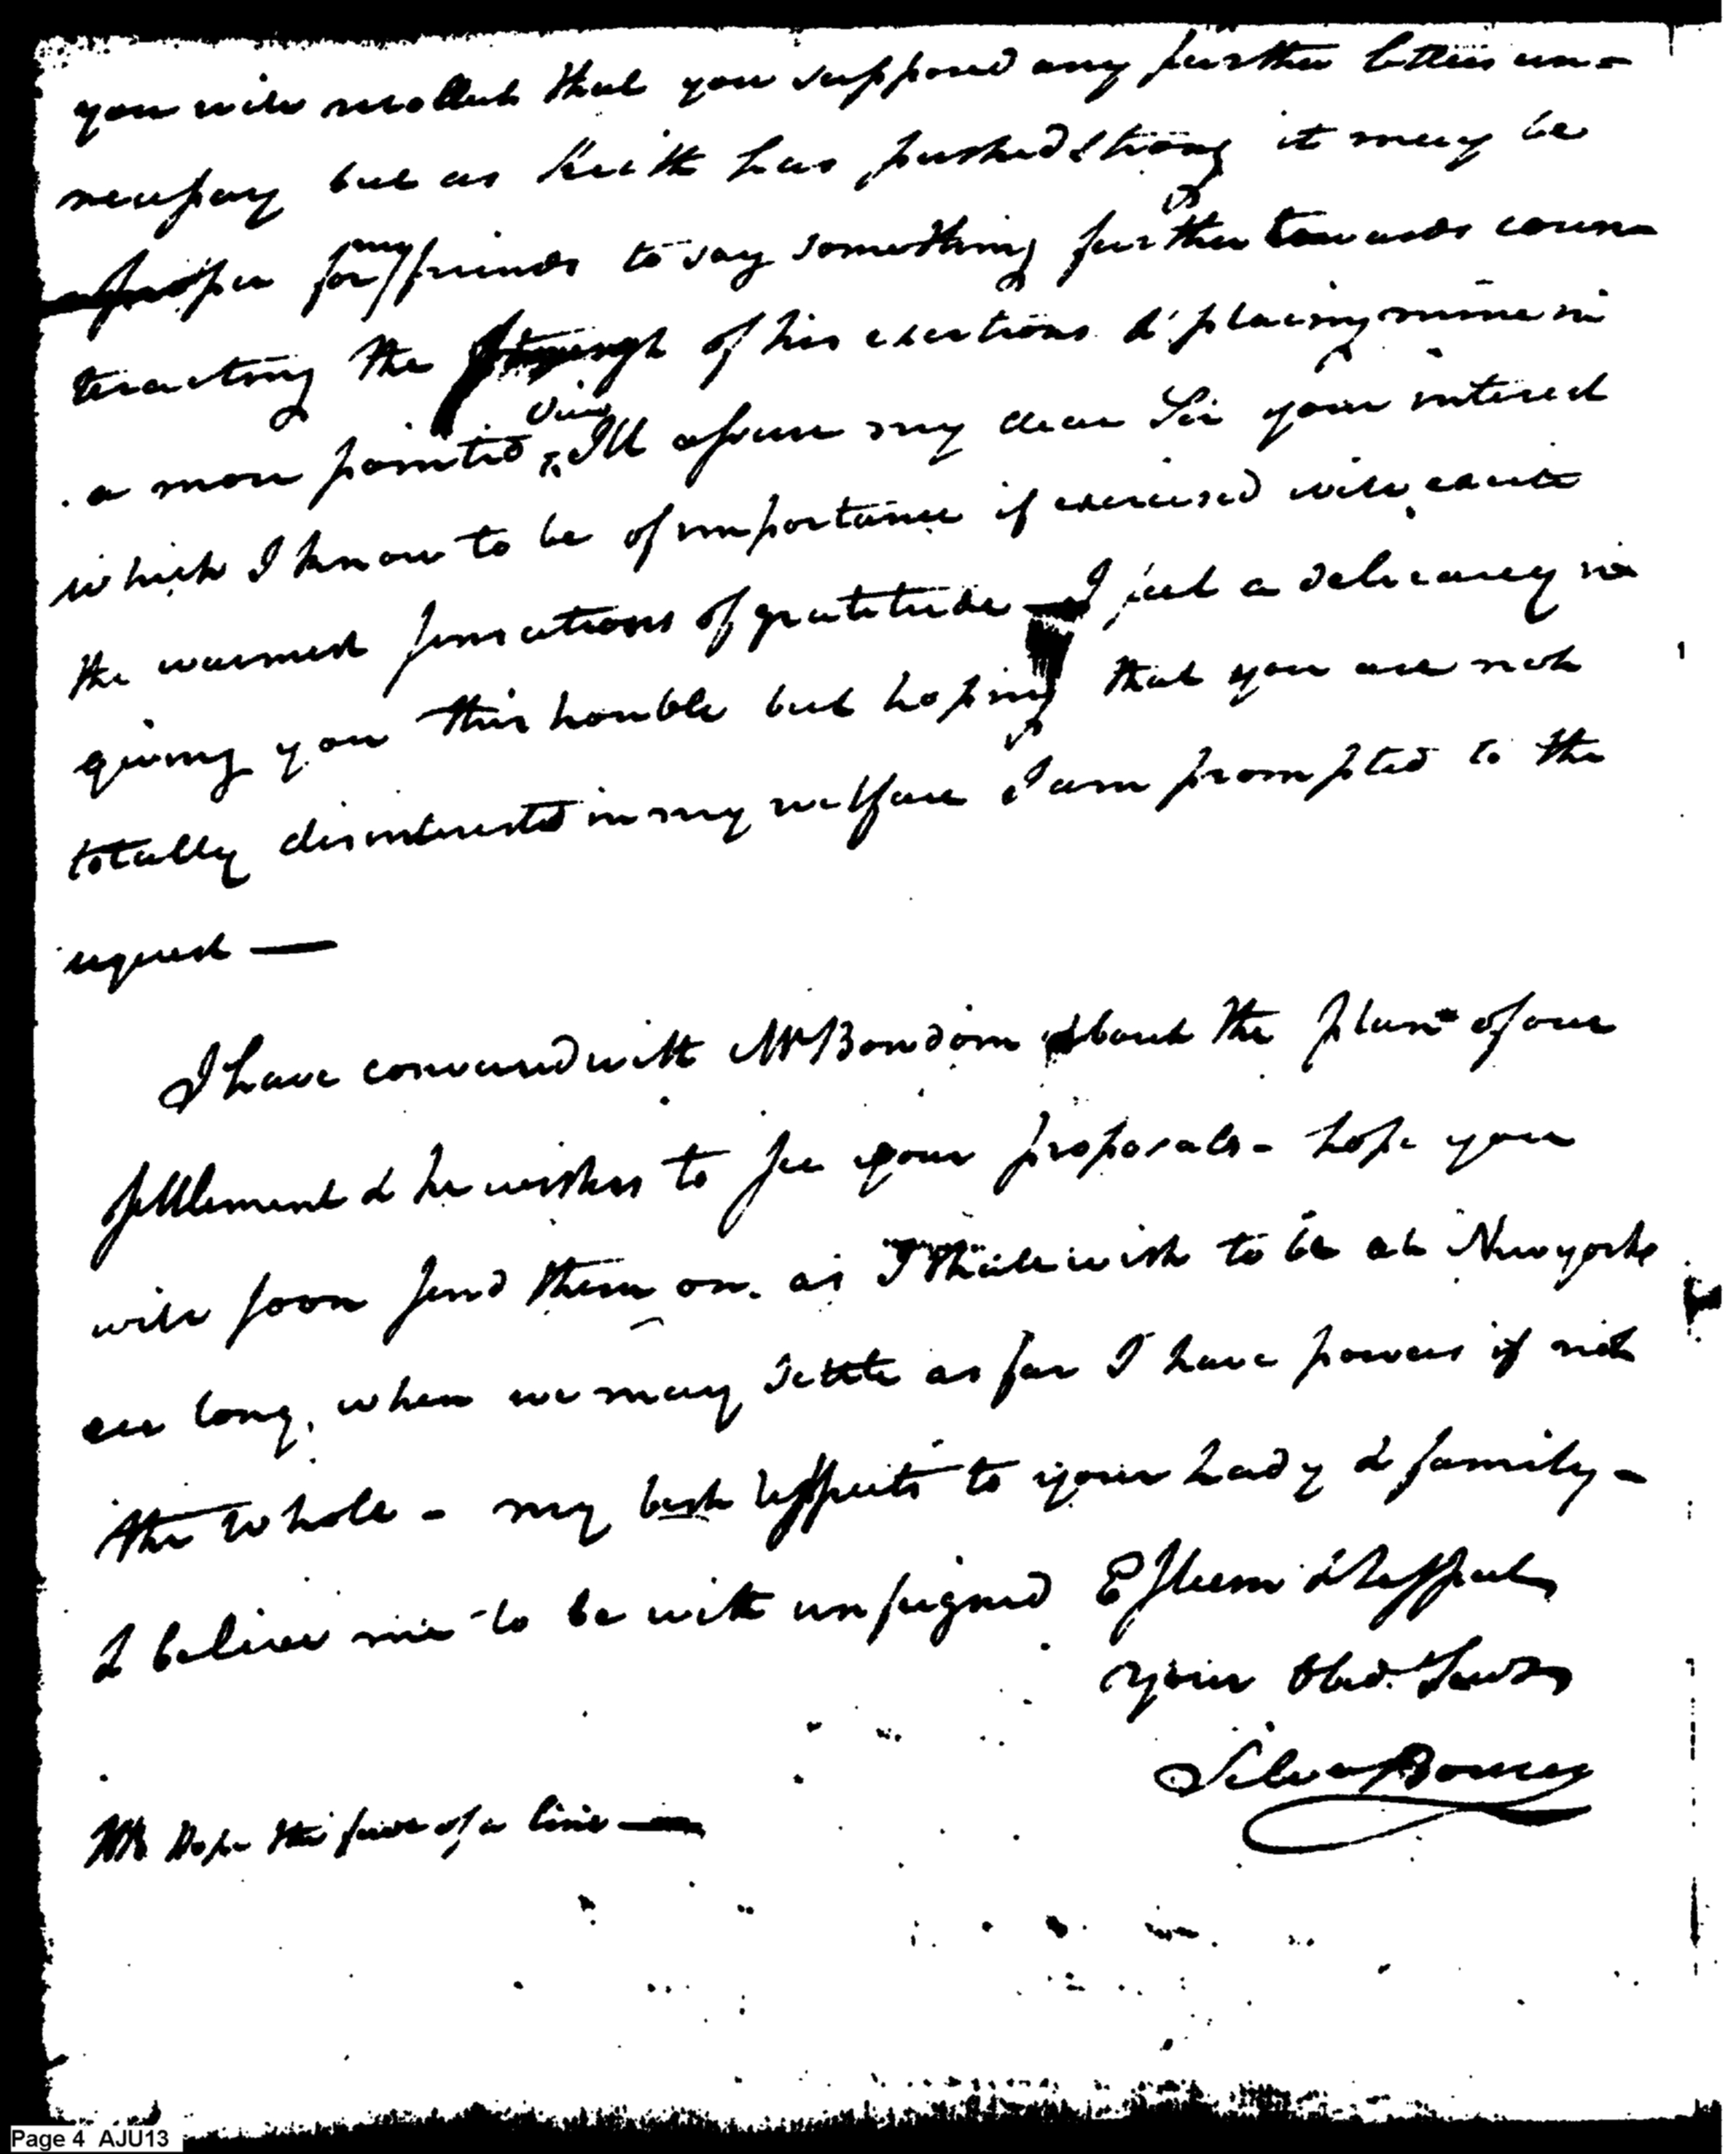 you will recollect that you supposed any further letters un-
necessary but as Keith has pushed strong it may be
proper for my friends to say something further towards coun
teracting the strength of his exertions & placing mine in
a more pointed view Ill assure my dear Sir your interest
which I know to be of importance if exercised will excite
the warmest sensations of gratitude I feel a delicacy in
giving you this trouble but hoping that you are not
totally disinterested in my welfare I am prompted to the
request —
I have conversed with Mr Bowdoin about the plan of our
settlement & he wishes to see your proposals - hope you
will soon send them on. as I shall wish to be at New york
ere long, when we may settle as far I have powers if not
the whole - my best respects to your Lady & family -
& believe me to be with unfeigned Esteem & respect
your Obed. Servt
Silva Bourn
NB hope the favor of a line —
Page 4 AJU13